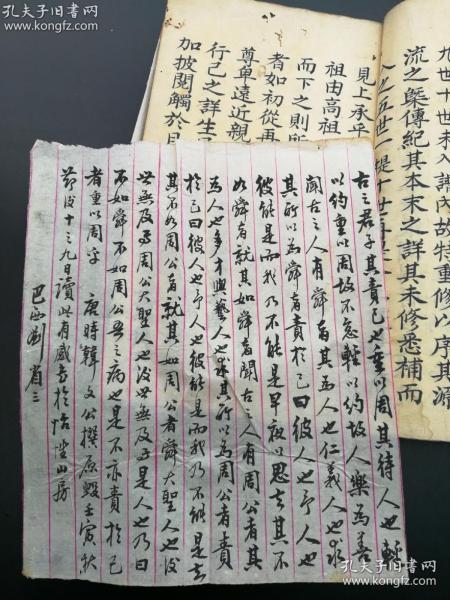 孔夫子旧书网
古之君子其責己也重以周其待人也輕
以約重以周故不怠輕以約故人樂為善
聞古之人有舜者其為人也仁義人也求
其所以為舜者責於己曰彼人也予人也
彼能是而我乃不能是早夜以思去其不
如舜者就其如舜者聞古之人有周公者其
為人也多才與藝人也求其所以為周公者責
於己曰彼人也予人也彼能是而我乃不能是去
其不如周公者就其如周公者舜大聖人也後
世無及焉周公大聖人也後世無及焉是人也乃曰
不如舜不如周公吾之病也是不亦責於己
者重以周乎 唐時韓文公撰原毀壬寅秋
節後十三九日讀此有感書於怡堂山房
巴西劉省三
九世十世未入譜內故特重修以序其源
流之槩傳紀其本末之詳其未修悉補而
入之五世一提十世
見上承乎
祖由高祖
而下之則所
者如初從再
尊卑遠近親
行己之詳生
加披閱觸於目
孔夫子旧书网